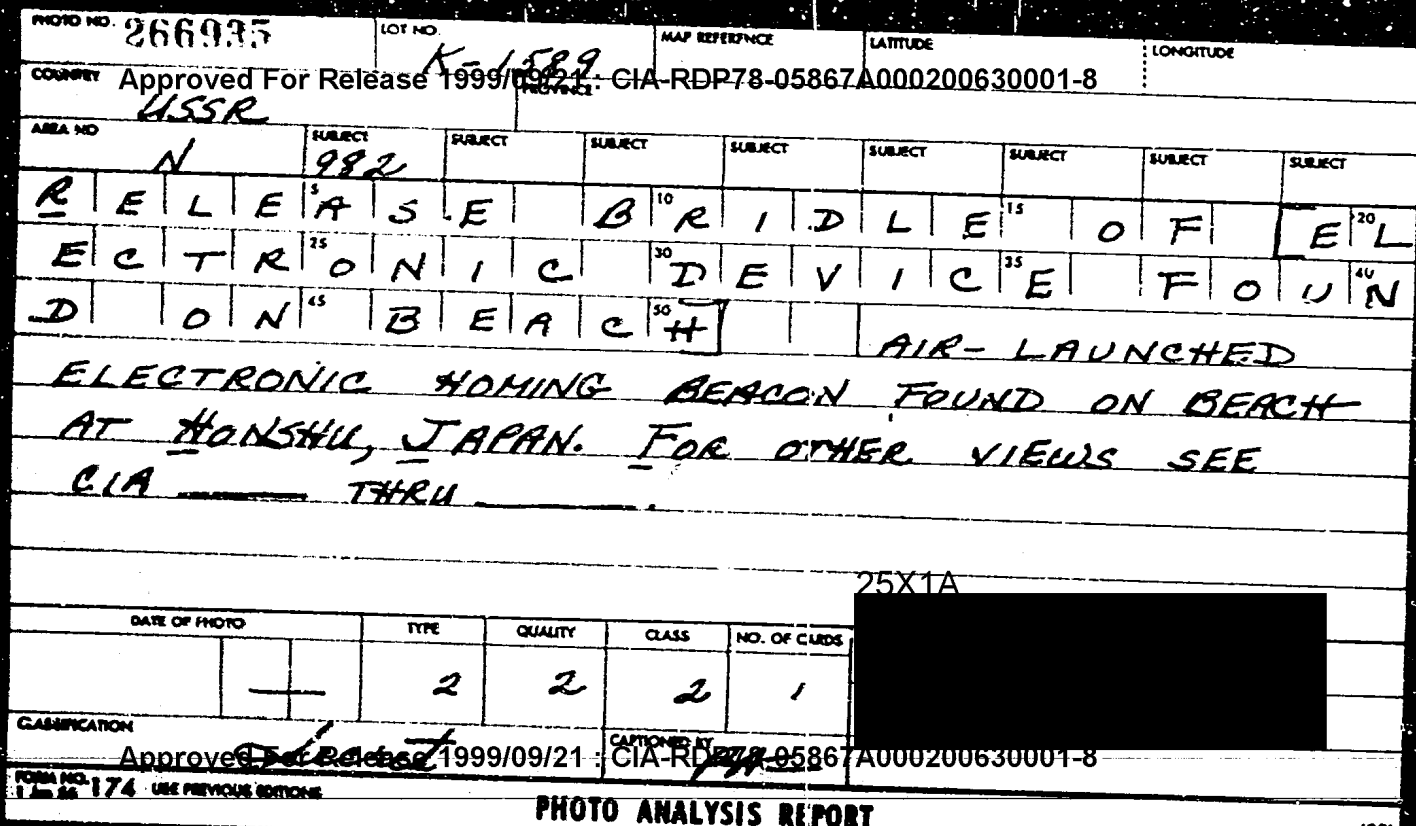 PHOTO NO. 266935 LOT NO. K-1589 MAP REFERENCE LATITUDE LONGITUDE
COUNTRY Approved For Release 1999/09/21 : CIA-RDP78-05867A000200630001-8
USSR PROVINCE
AREA NO SUBJECT SUBJECT SUBJECT SUBJECT SUBJECT SUBJECT SUBJECT SUBJECT
N 982
RELEASE BRIDLE OF EL
ECTRONIC DEVICE FOUN
D ON BEACH AIR-LAUNCHED
ELECTRONIC HOMING BEACON FOUND ON BEACH
AT HONSHU, JAPAN. FOR OTHER VIEWS SEE
CIA THRU .
25X1A
DATE OF PHOTO TYPE QUALITY CLASS NO. OF CARDS
2 2 2 1
CLASSIFICATION CAPTIONED BY
Approved For Release 1999/09/21 : CIA-RDP78-05867A000200630001-8
FORM NO. 174 USE PREVIOUS EDITIONS
PHOTO ANALYSIS REPORT